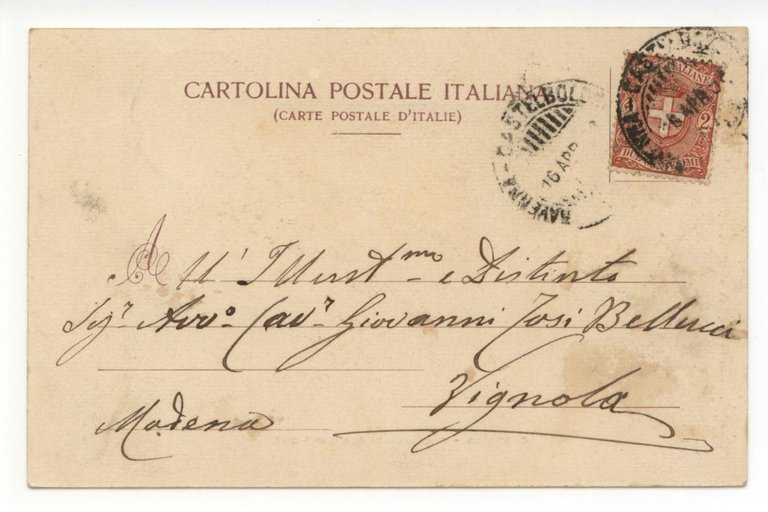 CARTOLINA POSTALE ITALIANA
(CARTE POSTALE D'ITALIE)
RAVENNA - CASTELBOLO
16 APR
2 2
All' Illust.mo e Distinto
Sigr Avvo Cavr Giovanni Tosi Bellucci
Vignola
Modena